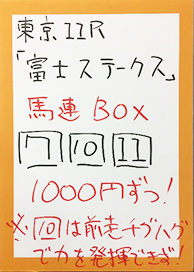 東京11R
「富士ステークス」
馬連BOX
7 10 11
1000円ずつ!
※10は前走チグハグ
で力を発揮できず!